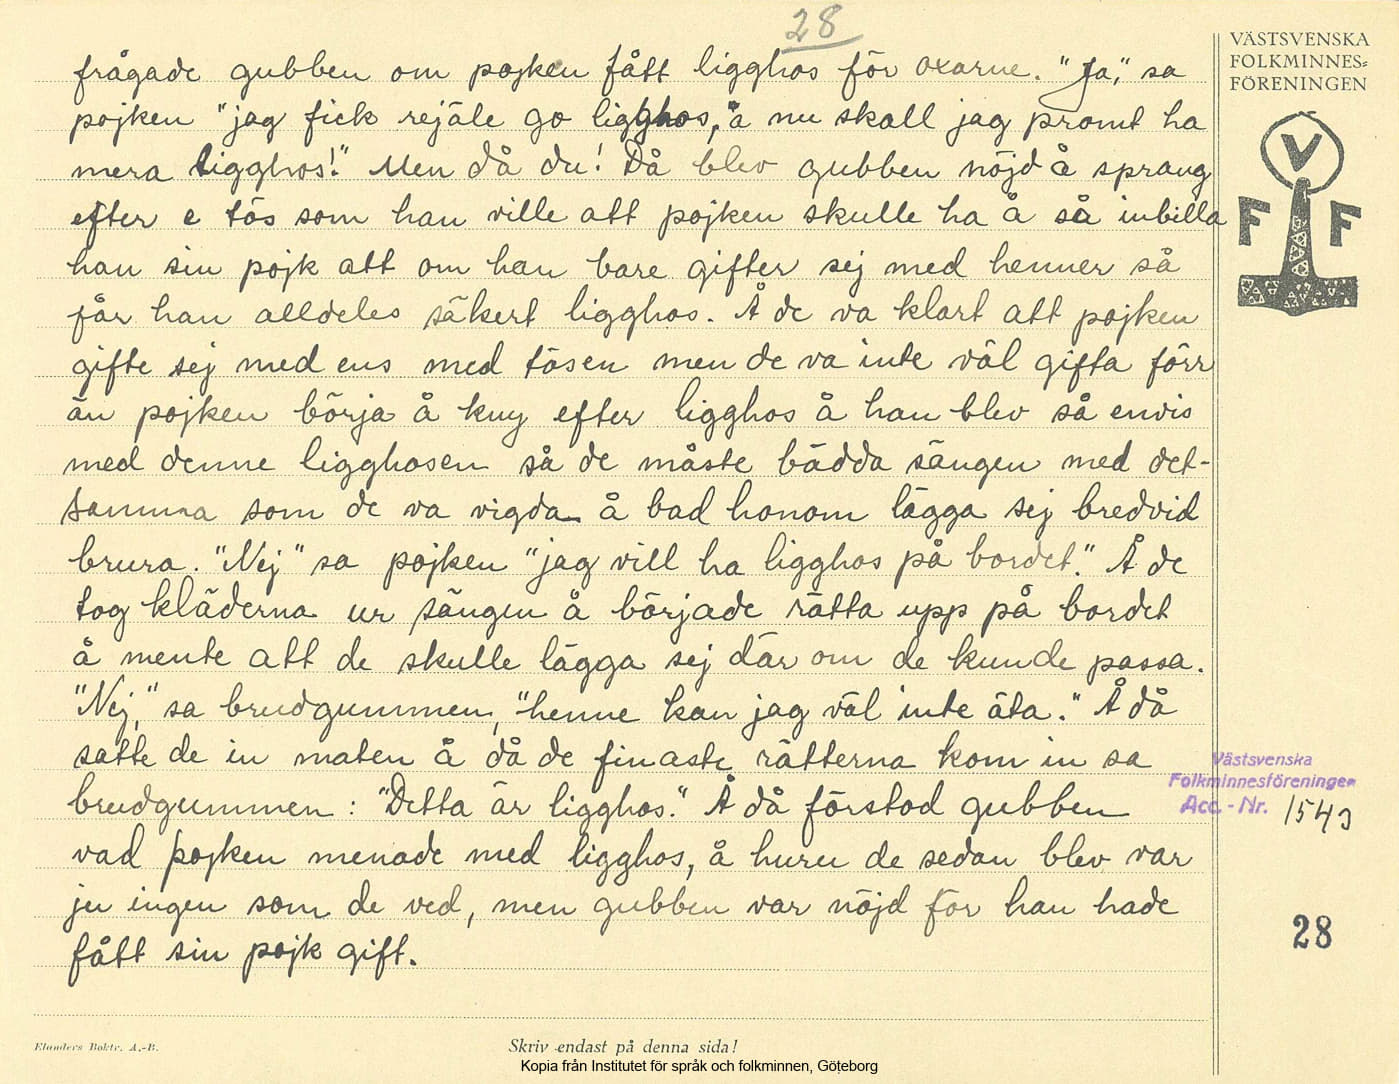 28
VÄSTSVENSKA
FOLKMINNES=
FÖRENINGEN
V
F F
frågade gubben om pojken fått ligghos för oxarne. "Ja," sa
pojken "jag fick rejäle go ligghos, å nu skall jag promt ha
mera ligghos!" Men då du! Då blev gubben nöjd å sprang
efter e tös som han ville att pojken skulle ha å så inbilla
han sin pojk att om han bare gifter sej med henner så
får han alldeles säkert ligghos. Å de va klart att pojken
gifte sej med ens med tösen men de va inte väl gifta förr
än pojken börja å kny efter ligghos å han blev så envis
med denne ligghosen så de måste bädda sängen med det-
samma som de va vigda å bad honom lägga sej bredvid
brura. "Nej" sa pojken "jag vill ha ligghos på bordet." Å de
tog kläderna ur sängen å började rätta upp på bordet
å mente att de skulle lägga sej där om de kunde passa.
"Nej," sa brudgummen, "henne kan jag väl inte äta." Å då
satte de in maten å då de finaste rätterna kom in sa
brudgummen: "Detta är ligghos." Å då förstod gubben
vad pojken menade med ligghos, å huru de sedan blev var
ju ingen som de ved, men gubben var nöjd för han hade
fått sin pojk gift.
Västsvenska
Folkminnesföreningen
Acc.-Nr. 1543
28
Elanders Boktr. A.-B.
Skriv endast på denna sida!
Kopia från Institutet för språk och folkminnen, Göteborg